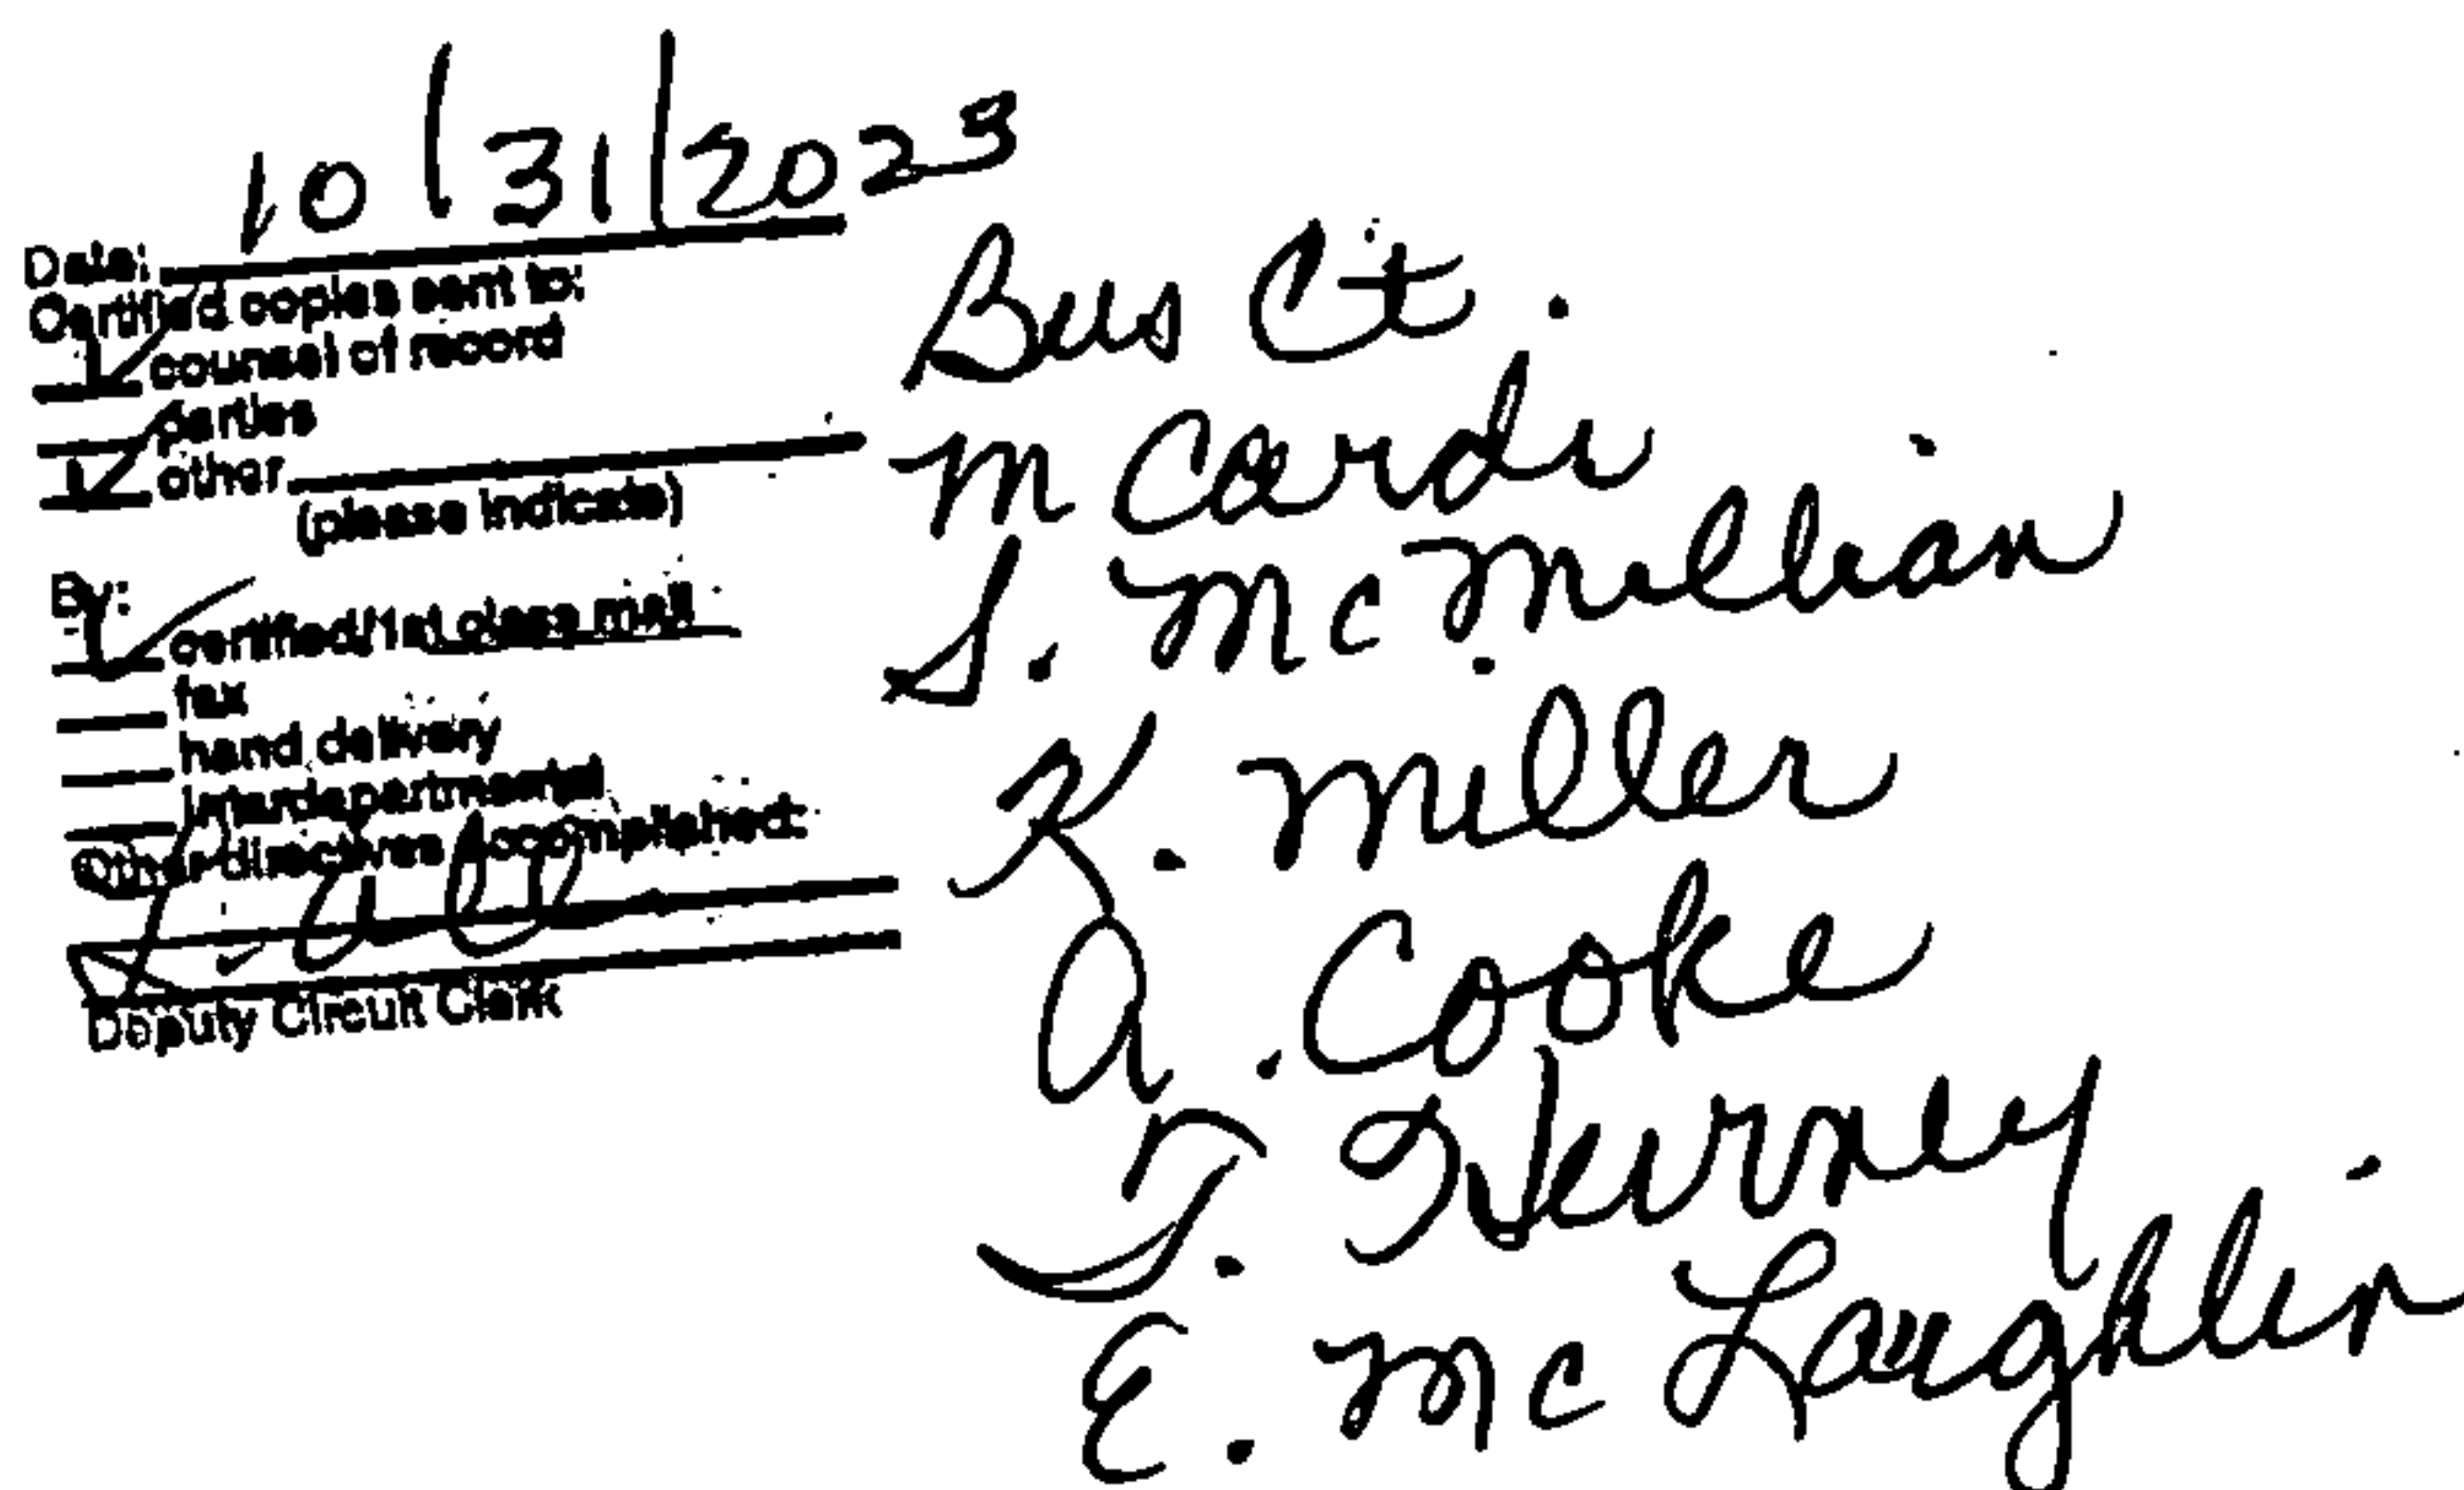 Date: 10/31/2023
Certified copies sent to:
✓ counsel of record
parties
✓ other
(please indicate)
By:
✓ certified/1st class mail
fax
hand delivery
interdepartmental
Other directives accomplished:
Deputy Circuit Clerk
Bus Ct.
M Cardi
S. McMillian
K. Miller
A. Cooke
J. Hurney
E. McLaughlin